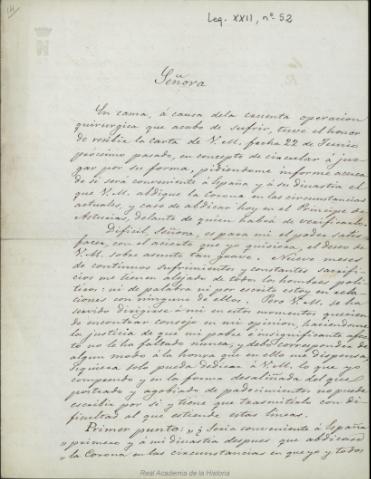 Leg. XXII, nº 52
Señora
En cama, á causa dela cruenta operacion
quirurgica que acabo de sufrir, tuve el honor
de recibir la carta de V. M. fecha 22 de Junio
próximo pasado, en concepto de circular á juz-
gar por su forma, pidiendome informe acerca
de si será conveniente á España y á su dinastia el
que V. M. abdique la Corona en las circunstancias
actuales, y caso de abdicar hoy en el Principe de
Asturias, delante de quien habrá de verificarlo.
Dificil, Señora, es para mi el poder satis-
facer, con el acierto que yo quisiera, el deseo de
V. M. sobre asunto tan grave. Nueve meses
de continuos sufrimientos y constantes sacrifi-
cios me tienen alejado de todos los hombres poli-
ticos: ni de palabra ni por escrito estoy en rela-
ciones con ninguno de ellos. Pero V. M. se ha
servido dirigirse á mi en estos momentos queriendo
encontrar consejo en mi opinion, haciendome
la justicia de que mi pobre é insignificante afec-
to no le ha faltado nunca, y debo corresponder de
algun modo á la honra que en ello me dispensa,
siquiera solo pueda dedicar á V. M. lo que yo
comprendo y en la forma desaliñada del que
postrado y agobiado de padecimientos no puede
escribir por si y tiene que trasmitirlo con di-
ficultad al que estiende estas lineas.
Primer punto: "¿Seria conveniente á España
"primero y á mi dinastia despues que abdicase
"la Corona en las circunstancias en que yo y todos
Real Academia de la Historia